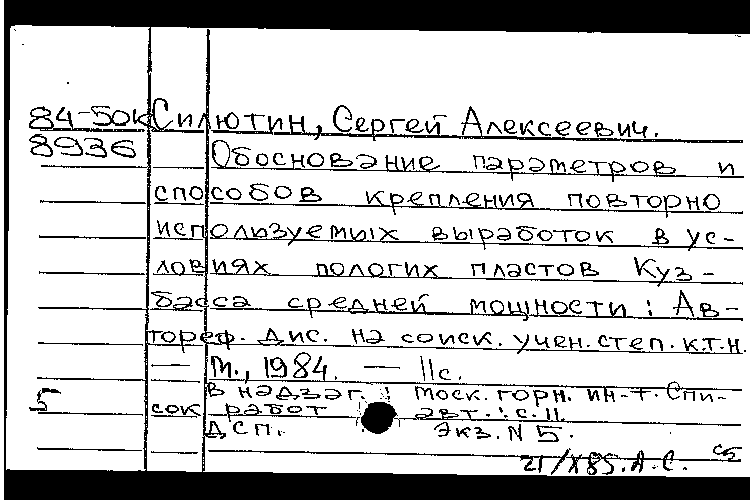 84-50к Силютин, Сергей Алексеевич.
8936 Обоснование параметров и
способов крепления повторно
используемых выработок в ус-
ловиях пологих пластов Куз-
басса средней мощности: Ав-
тореф. дис. на соиск. учен. степ. к.т.н.
— М., 1984. — 11с.
В надзаг.: Моск. горн. ин-т. Спи-
5 сок работ авт.: с. 11.
ДСП. Экз. N 5.
21/X85. А.С.